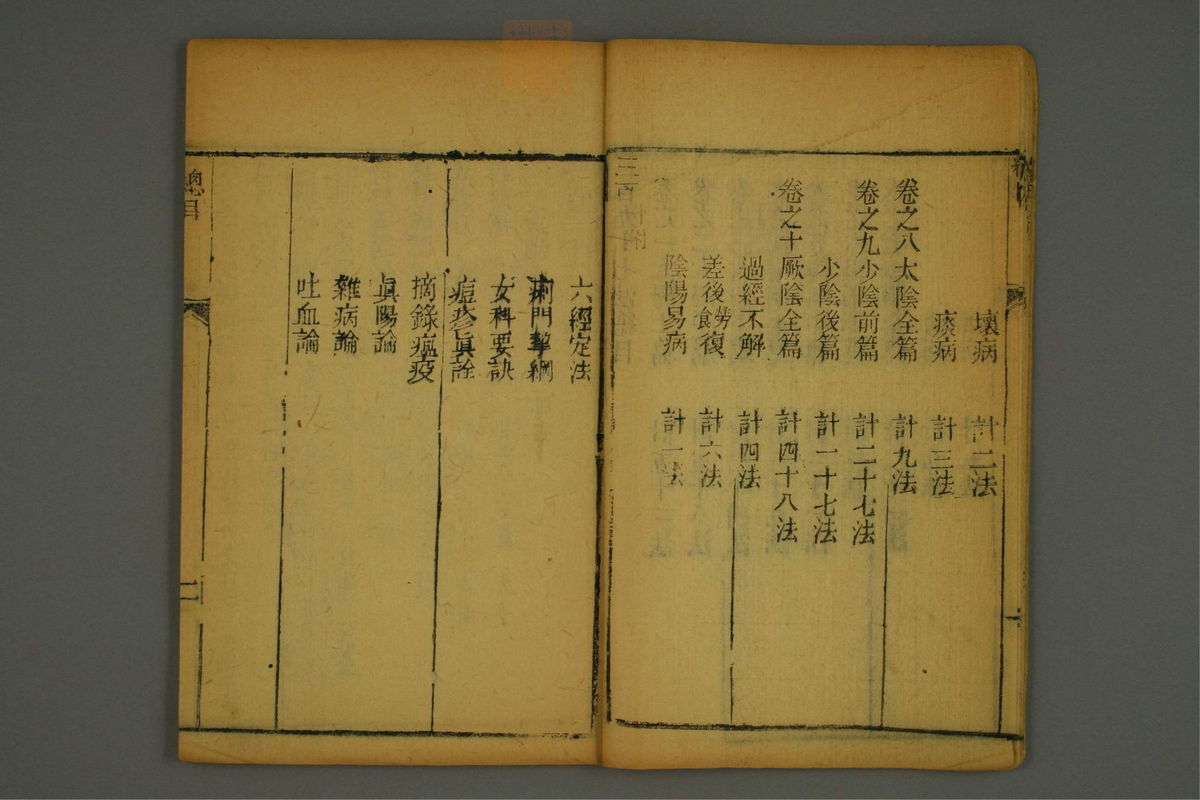 壞病 計二法
痰病 計三法
卷之八太陰全篇 計九法
卷之九少陰前篇 計二十七法
少陰後篇 計一十七法
卷之十厥陰全篇 計四十八法
過經不解 計四法
差後勞食復 計六法
陰陽易病 計一法
六經定法
痢門挈綱
女科要訣
痘疹眞詮
摘錄瘟疫
眞陽論
雜病論
吐血論
總目
二